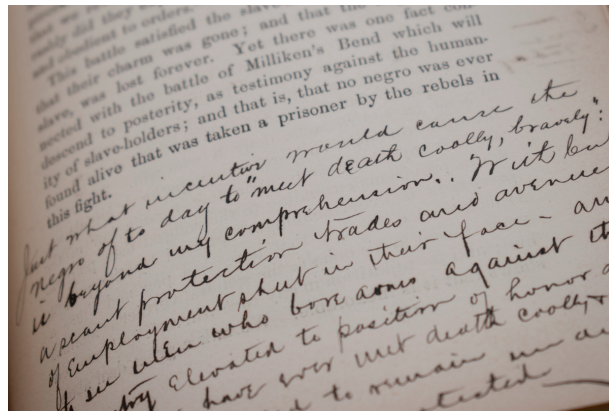 that we
ably did they
and obedient to orders.
This battle satisfied the slave
that their charm was gone; and that the
slave, was lost forever. Yet there was one fact con-
nected with the battle of Milliken's Bend which will
descend to posterity, as testimony against the human-
ity of slave-holders; and that is, that no negro was ever
found alive that was taken a prisoner by the rebels in
this fight.
Just what incentive would cause the
negro of to day to "meet death coolly, bravely":
is beyond my comprehension.. With but
a scant protection trades and avenue
of Employment shut in their face - an
to see men who bore arms against th
Elevated to position of honor
have ever met death coolly
to remain